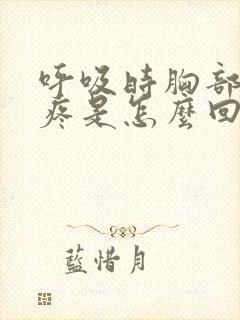 呼吸時胸部
疼是怎麼回
藍惜月